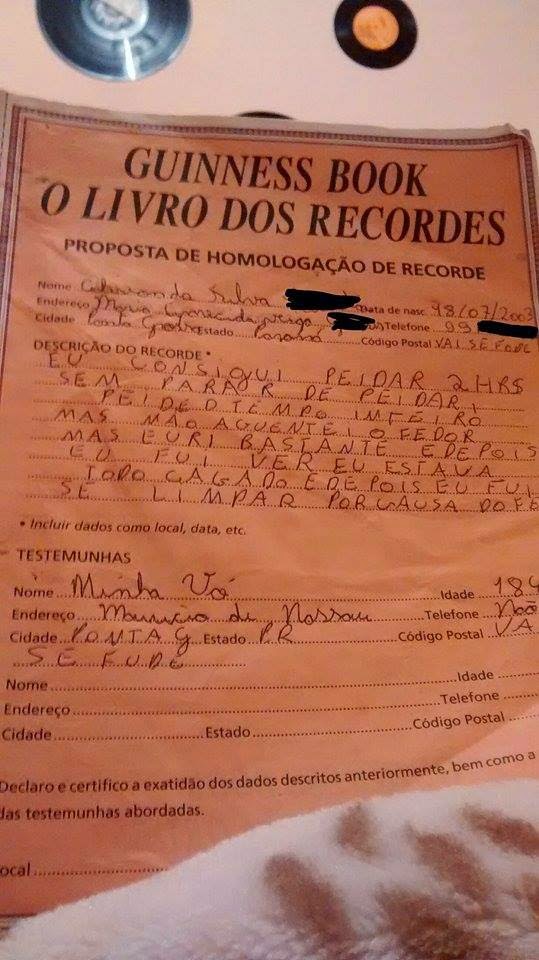 GUINNESS BOOK
O LIVRO DOS RECORDES
PROPOSTA DE HOMOLOGAÇÃO DE RECORDE
Nome da Silva Data de nasc. 98/07/2003
Endereço Maria Telefone 99
Cidade Ponta Estado Paraná Código Postal VAI SE FODE
DESCRIÇÃO DO RECORDE *
EU CONSIGUI PEIDAR 2HRS
SEM PARAR DE PEIDAR,
PEIDED TEMPO IMTEIRO
MAS MÃO AGUENTEI O FEDOR
MAS EURI BASTANTE EDEPOIS
EU FUI VER EU ESTAVA
TODO CAGADO EDEPOIS EU FUI
SE LIMPAR PORCAUSA DO FE
* Incluir dados como local, data, etc.
TESTEMUNHAS
Nome Minha Vó Idade 189
Endereço Mauricio de Nassau Telefone Não
Cidade PONTA G Estado PR Código Postal VA
SE FUDE
Nome Idade
Endereço Telefone
Cidade Estado Código Postal
Declaro e certifico a exatidão dos dados descritos anteriormente, bem como a
das testemunhas abordadas.
ocal